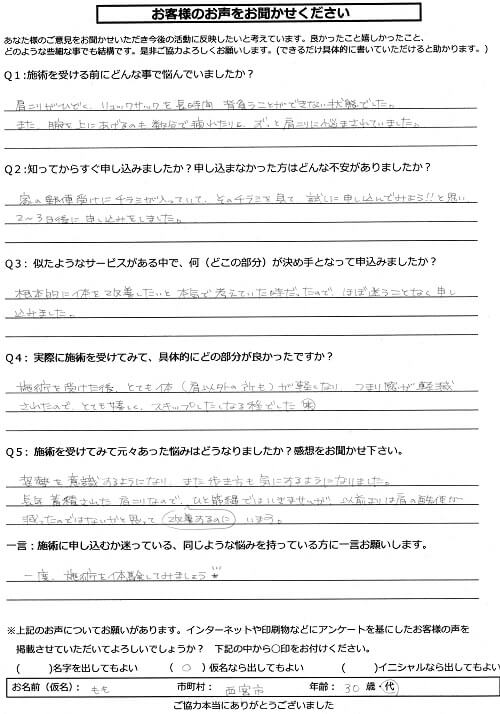 お客様のお声をお聞かせください
あなた様のご意見をお聞かせいただき今後の活動に反映したいと考えています。良かったこと嬉しかったこと、
どのような些細な事でも結構です。是非ご協力よろしくお願いします。(できるだけ具体的に書いていただけると助かります。)
Q1:施術を受ける前にどんな事で悩んでいましたか?
肩こりがひどく、リュックサックを長時間 背負うことができない状態でした。
また、腕を上にあげるのも数分で疲れたりと、ズッと肩こりに悩まされていました。
Q2:知ってからすぐ申し込みましたか?申し込まなかった方はどんな不安がありましたか?
家の郵便受けにチラシが入っていて、そのチラシを見て 試しに申し込んでみよう!!と思い
2〜3日後に申し込みをしました。
Q3: 似たようなサービスがある中で、何(どこの部分)が決め手となって申込みましたか?
根本的に体を改善したいと本気で考えていた時だったので、ほぼ迷うことなく申し
込みました。
Q4: 実際に施術を受けてみて、具体的にどの部分が良かったですか?
施術を受けた後、とても体(肩以外の所も)が軽くなり、つまり感が軽減
されたので、とても嬉しく、スキップしたくなる程でした
Q5: 施術を受けてみて元々あった悩みはどうなりましたか?感想をお聞かせ下さい。
姿勢を意識するようになり、また歩き方も気にするようになりました。
長年蓄積された肩こりなので、ひと筋縄ではいきませんが、以前よりは肩の
減ったのではないかと思って います。
一言:施術に申し込むか迷っている、同じような悩みを持っている方に一言お願いします。
一度、施術を体験してみましょう
※上記のお声についてお願いがあります。インターネットや印刷物などにアンケートを基にしたお客様の声を
掲載させていただいてよろしいでしょうか? 下記の中から○印をお付けください。
( )名字を出してもよい ( ○ )仮名なら出してもよい ( )イニシャルなら出してもよい
お名前(仮名): もも 市町村: 西宮市 年齢: 30 歳・代
ご協力本当にありがとうございました